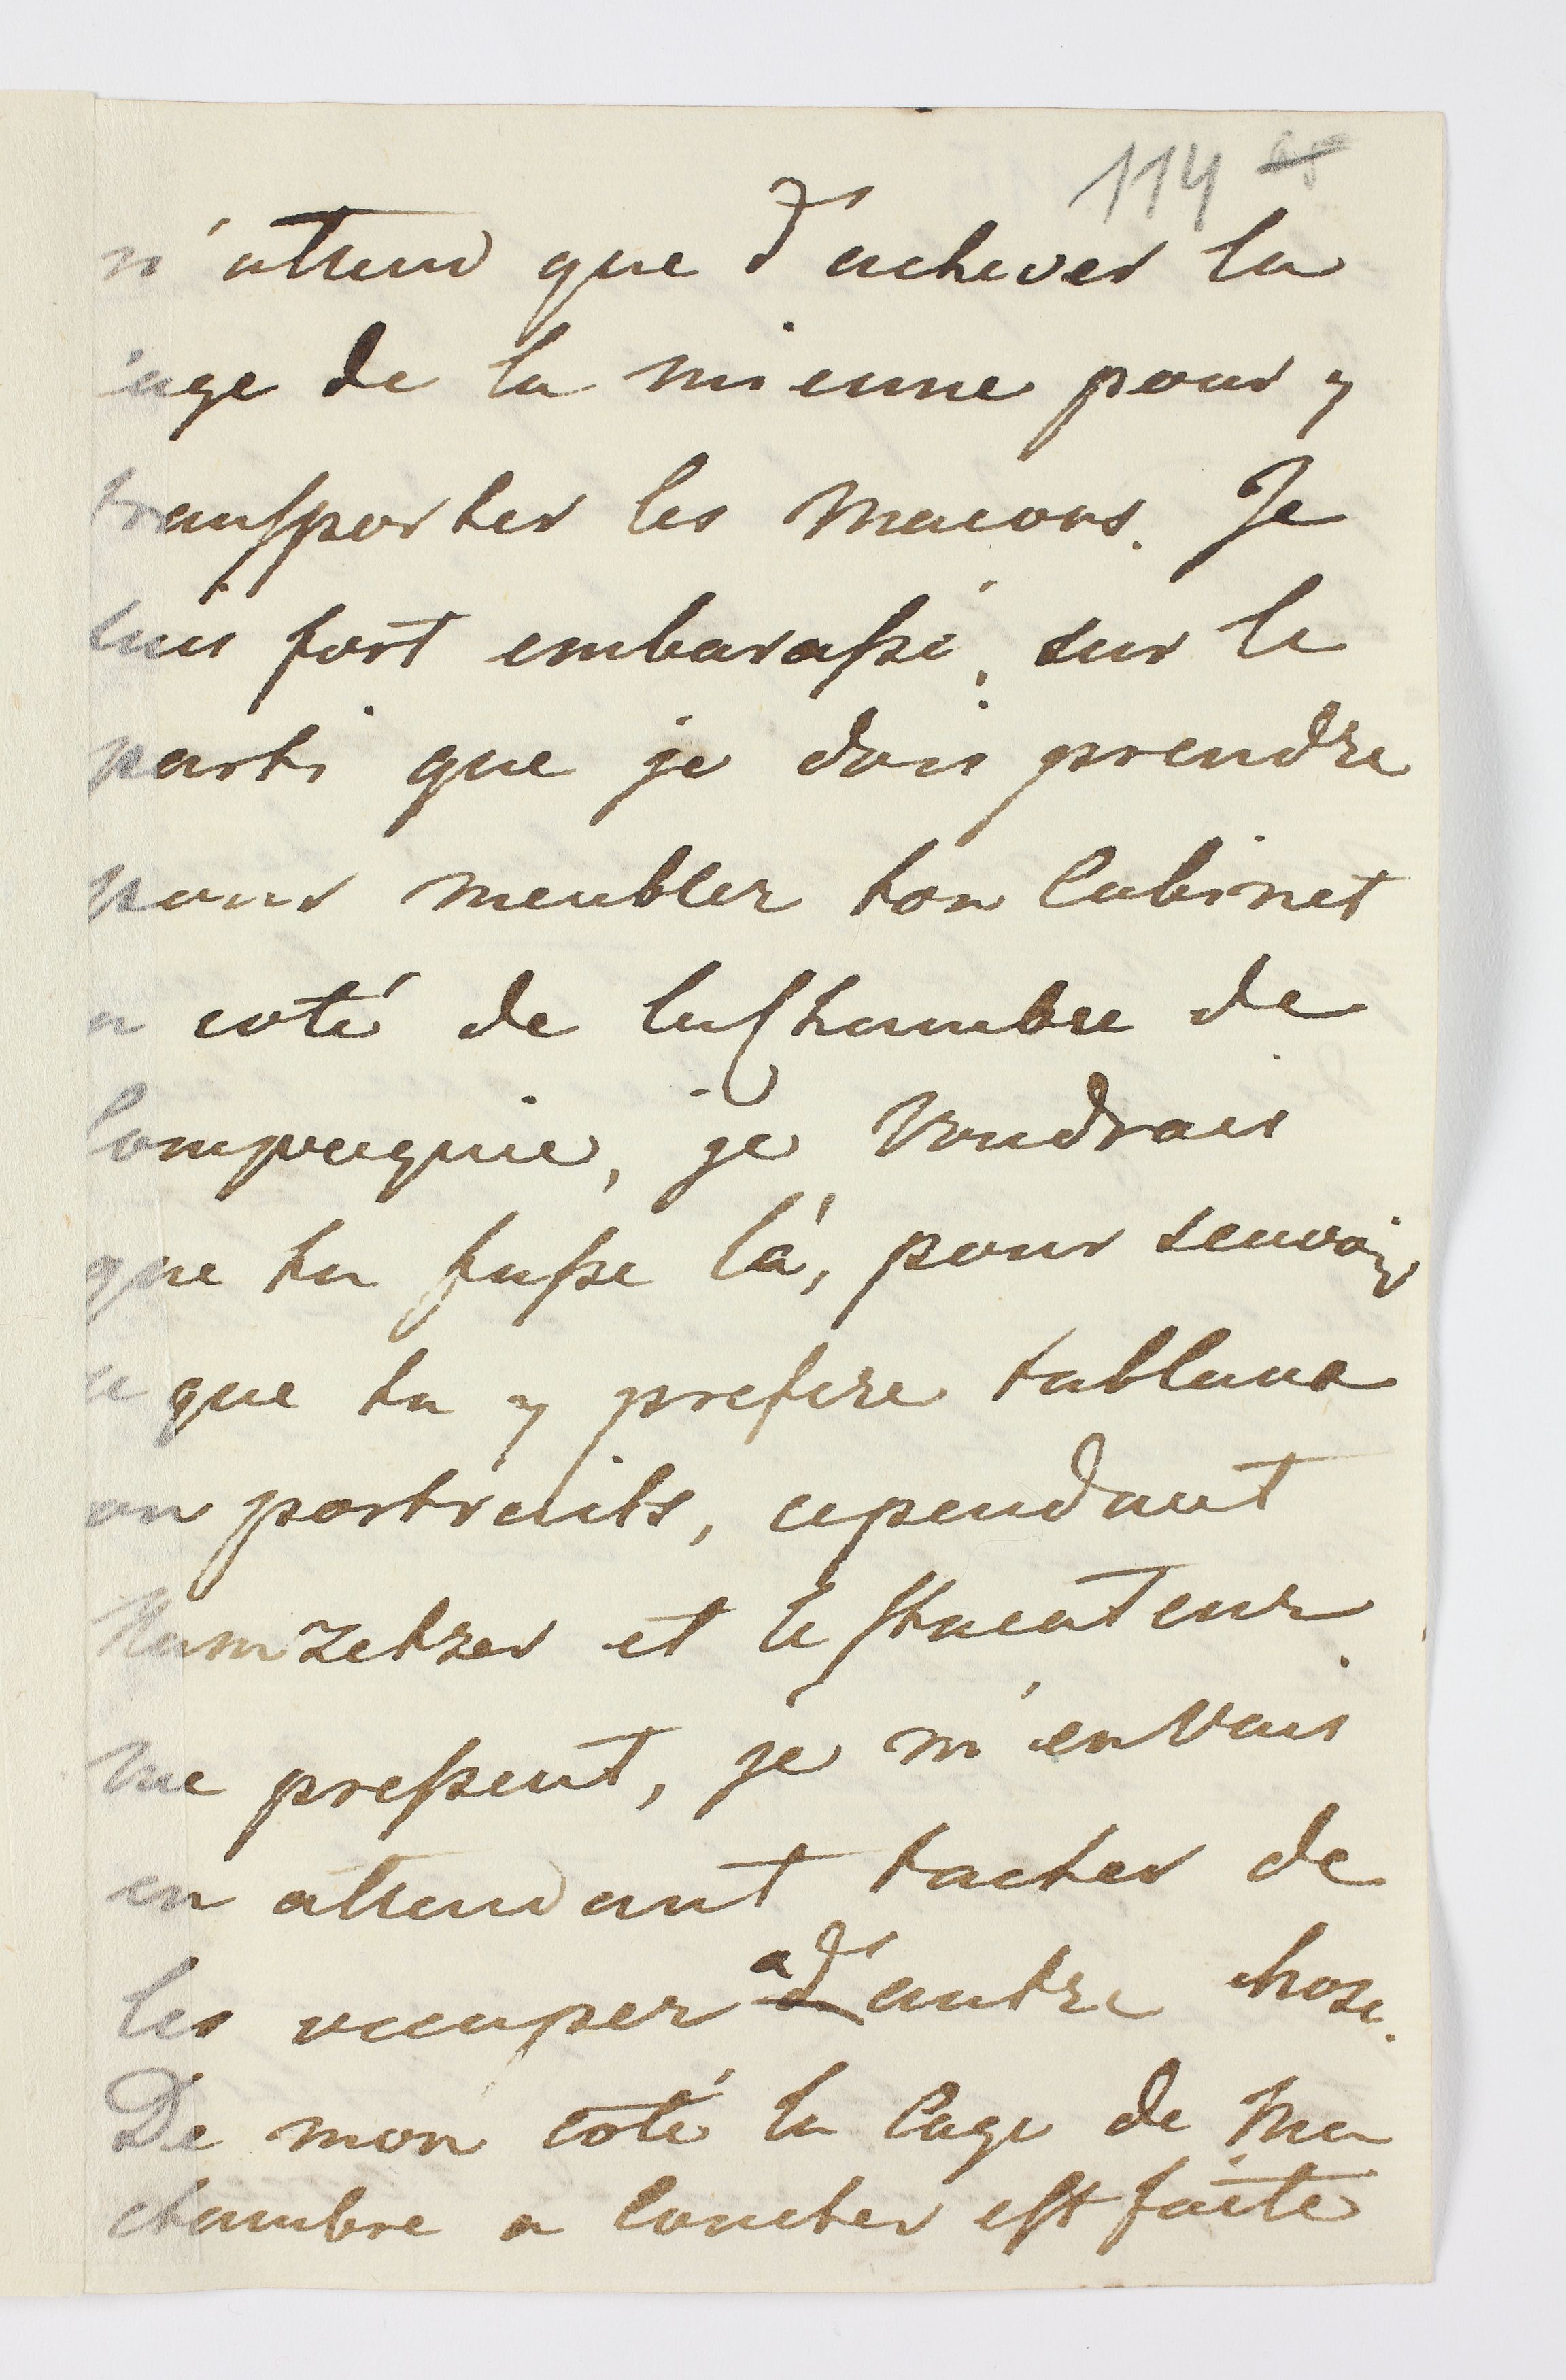 114
n'attend que d'achever la
cage de la mienne pour y
transporter les macons. Je
suis fort embarassé, sur le
parti que je dois prendre
pour meubler ton Cabinet
a coté de la Chambre de
Compagnie, je voudrais
que tu fusse là, pour scavoir
ce que tu y prefere tableaux
ou portraits, cependant
et le stucateur
me pressent, je m'en vais
en attendant tacher de
les occuper a d'autre chose.
De mon coté la Cage de Ma
chambre a coucher est faite